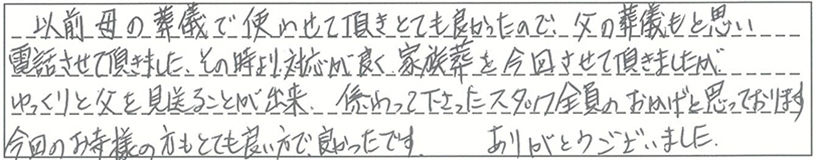 以前母の葬儀で使わせて頂きとても良かったので、父の葬儀もと思い
電話させて頂きました、その時より対応が良く家族葬を今回させて頂きましたが
ゆっくりと父を見送ることが出来、係わって下さったスタッフ全員のおかげと思っております
今回のお寺様の方もとても良い方で、良かったです。 ありがとうございました。